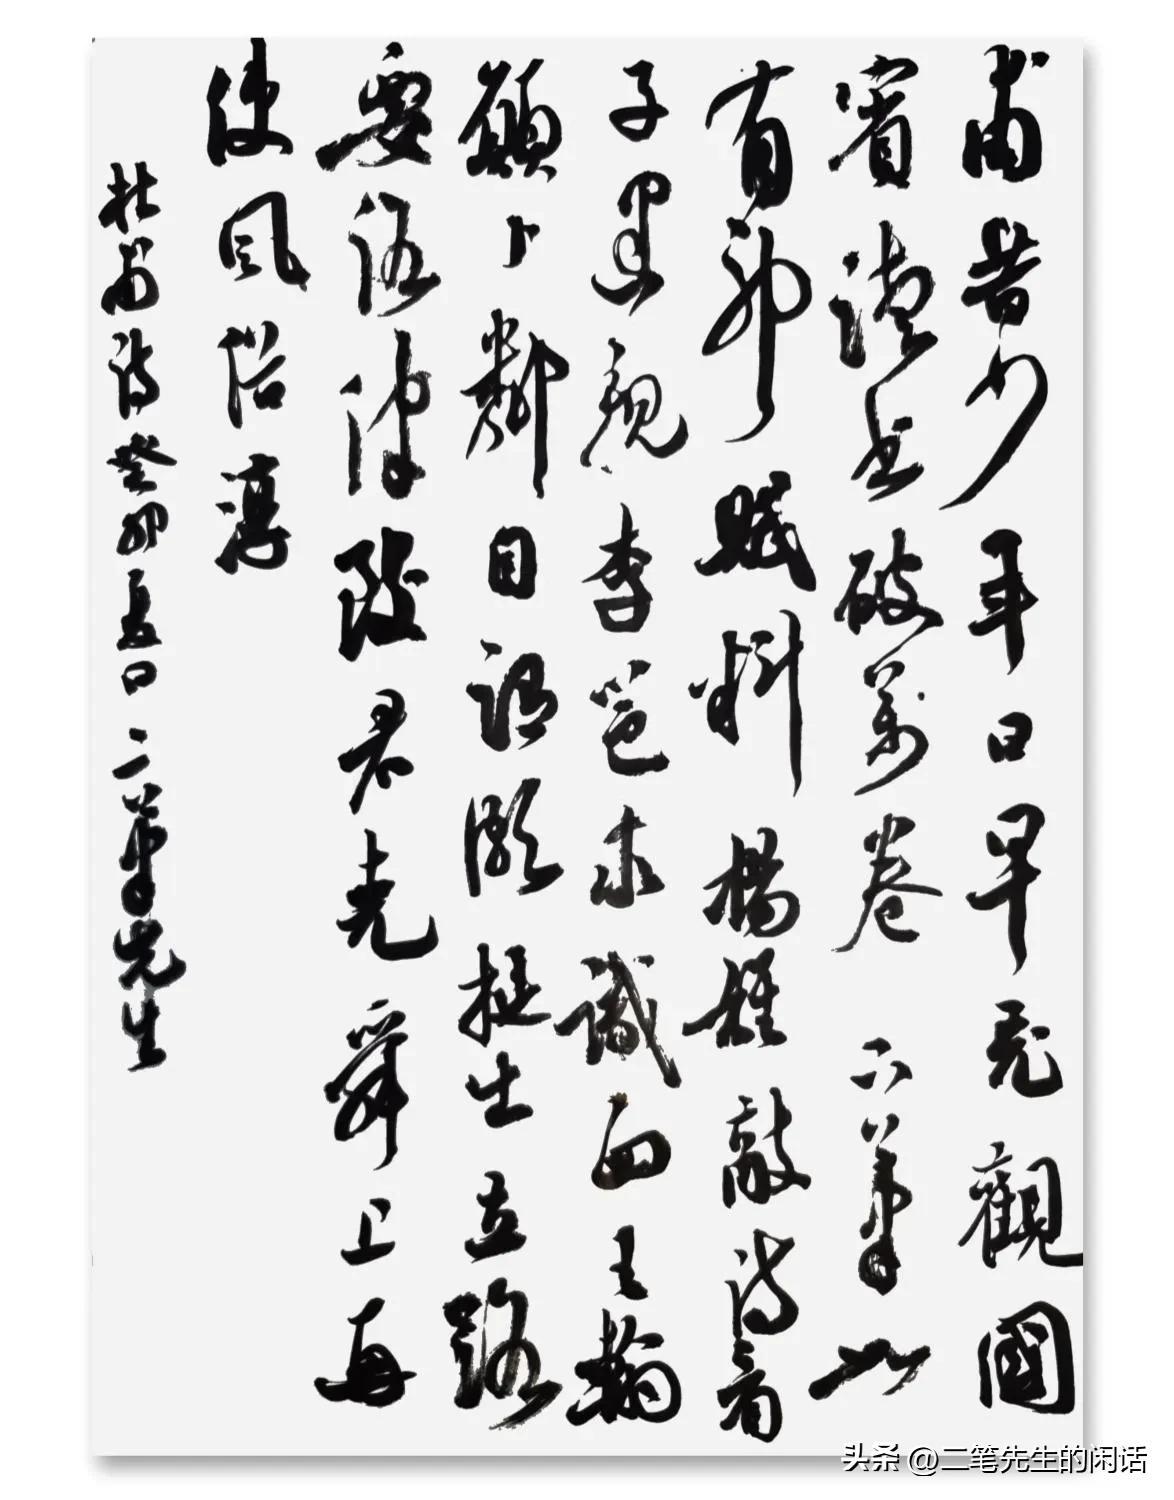 甫昔少年日早充觀國
賓讀書破萬卷下筆如
有神賦料楊雄敵詩看
子建親李邕求識面王翰
願卜鄰自謂頗挺出立路
要路津致君堯舜上再
使風俗淳
杜甫詩癸卯夏日二筆先生
头条 @二笔先生的闲话